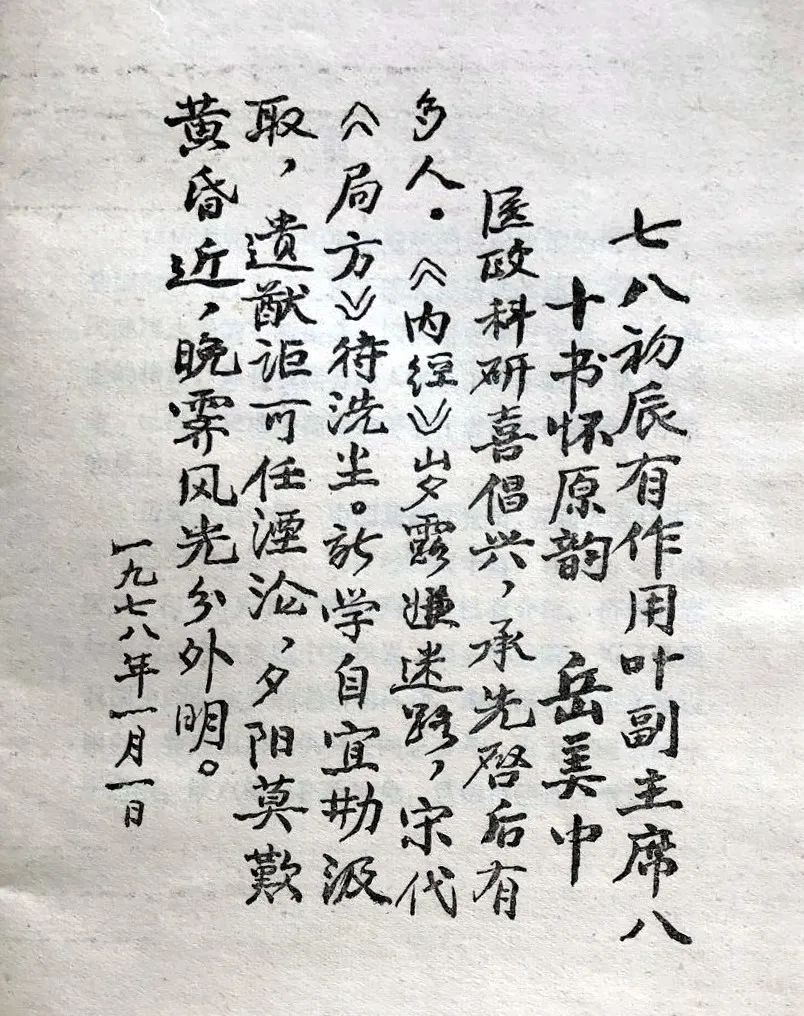 七八初辰有作用叶副主席八
十书怀原韵 岳美中
医政科研喜倡兴，承先啓后有
多人。《内經》岁露嫌迷路，宋代
《局方》待洗尘。新学自宜勤汲
取，遺猷讵可任湮沦，夕阳莫歎
黄昏近，晚霁风光分外明。
一九七八年一月一日